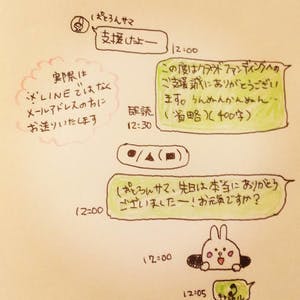 ぱとろんサマ
支援したよー
12:00
この度はクラウドファンディングへの
ご支援誠にありがとうござい
ます。うんぬんかんぬん…
(省略)(400字)
既読
12:30
実際は
※LINEではなく
メールアドレスの方に
お送りいたします
(●/▲/■)
ぱとろんサマ、先日は本当にありがとう
ございましたー!お元気ですか?
12:00
12:00
12:05